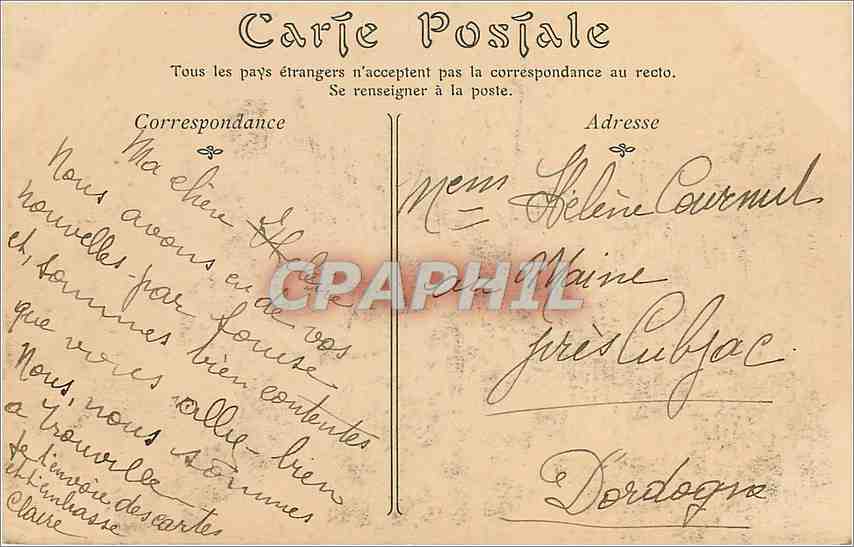 Carte Postale
Tous les pays étrangers n'acceptent pas la correspondance au recto.
Se renseigner à la poste.
Correspondance
Ma chère Hélène
Nous avons eu de vos
nouvelles par Louise
et, sommes bien contentes
que vous allie bien
Nous, nous sommes
a Trouville
Je t'envoie des cartes
et t'embrasse
Claire
Adresse
Hélène Cournut
au Maine
près Cubjac
Dordogne
CPAPHIL